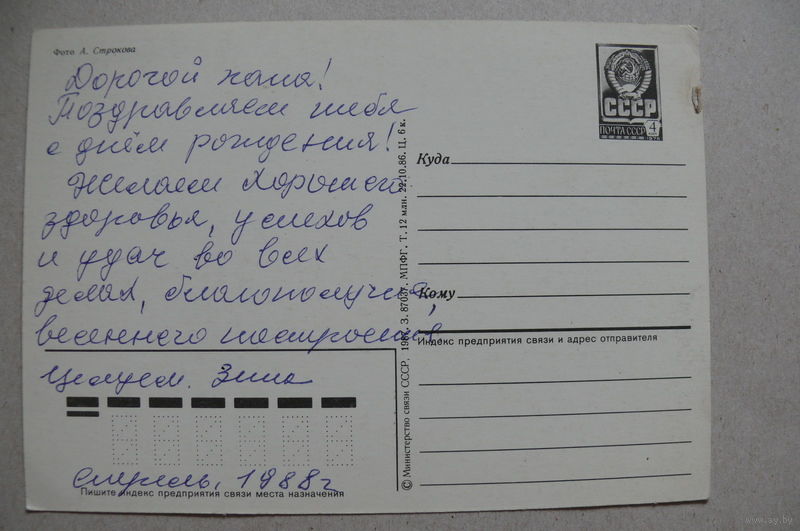 Фото А. Строкова
Дорогой папа!
Поздравляем тебя
с днём рождения!
Желаем хорошего
здоровья, успехов
и удач во всех
делах, благополучия,
весеннего настроения.
Целуем. Зина
апрель, 1988 г
Пишите индекс предприятия связи места назначения
© Министерство связи СССР, З. 87037. МПФГ. Т. 12 млн. 22.10.86. Ц. 6 к.
СССР
ПОЧТА СССР 4
Куда
Кому
Индекс предприятия связи и адрес отправителя
www.ay.by